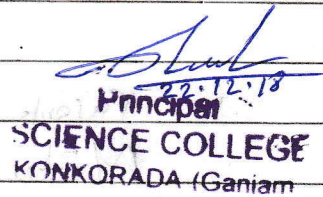 22.12.18
Principal
SCIENCE COLLEGE
KONKORADA (Ganjam